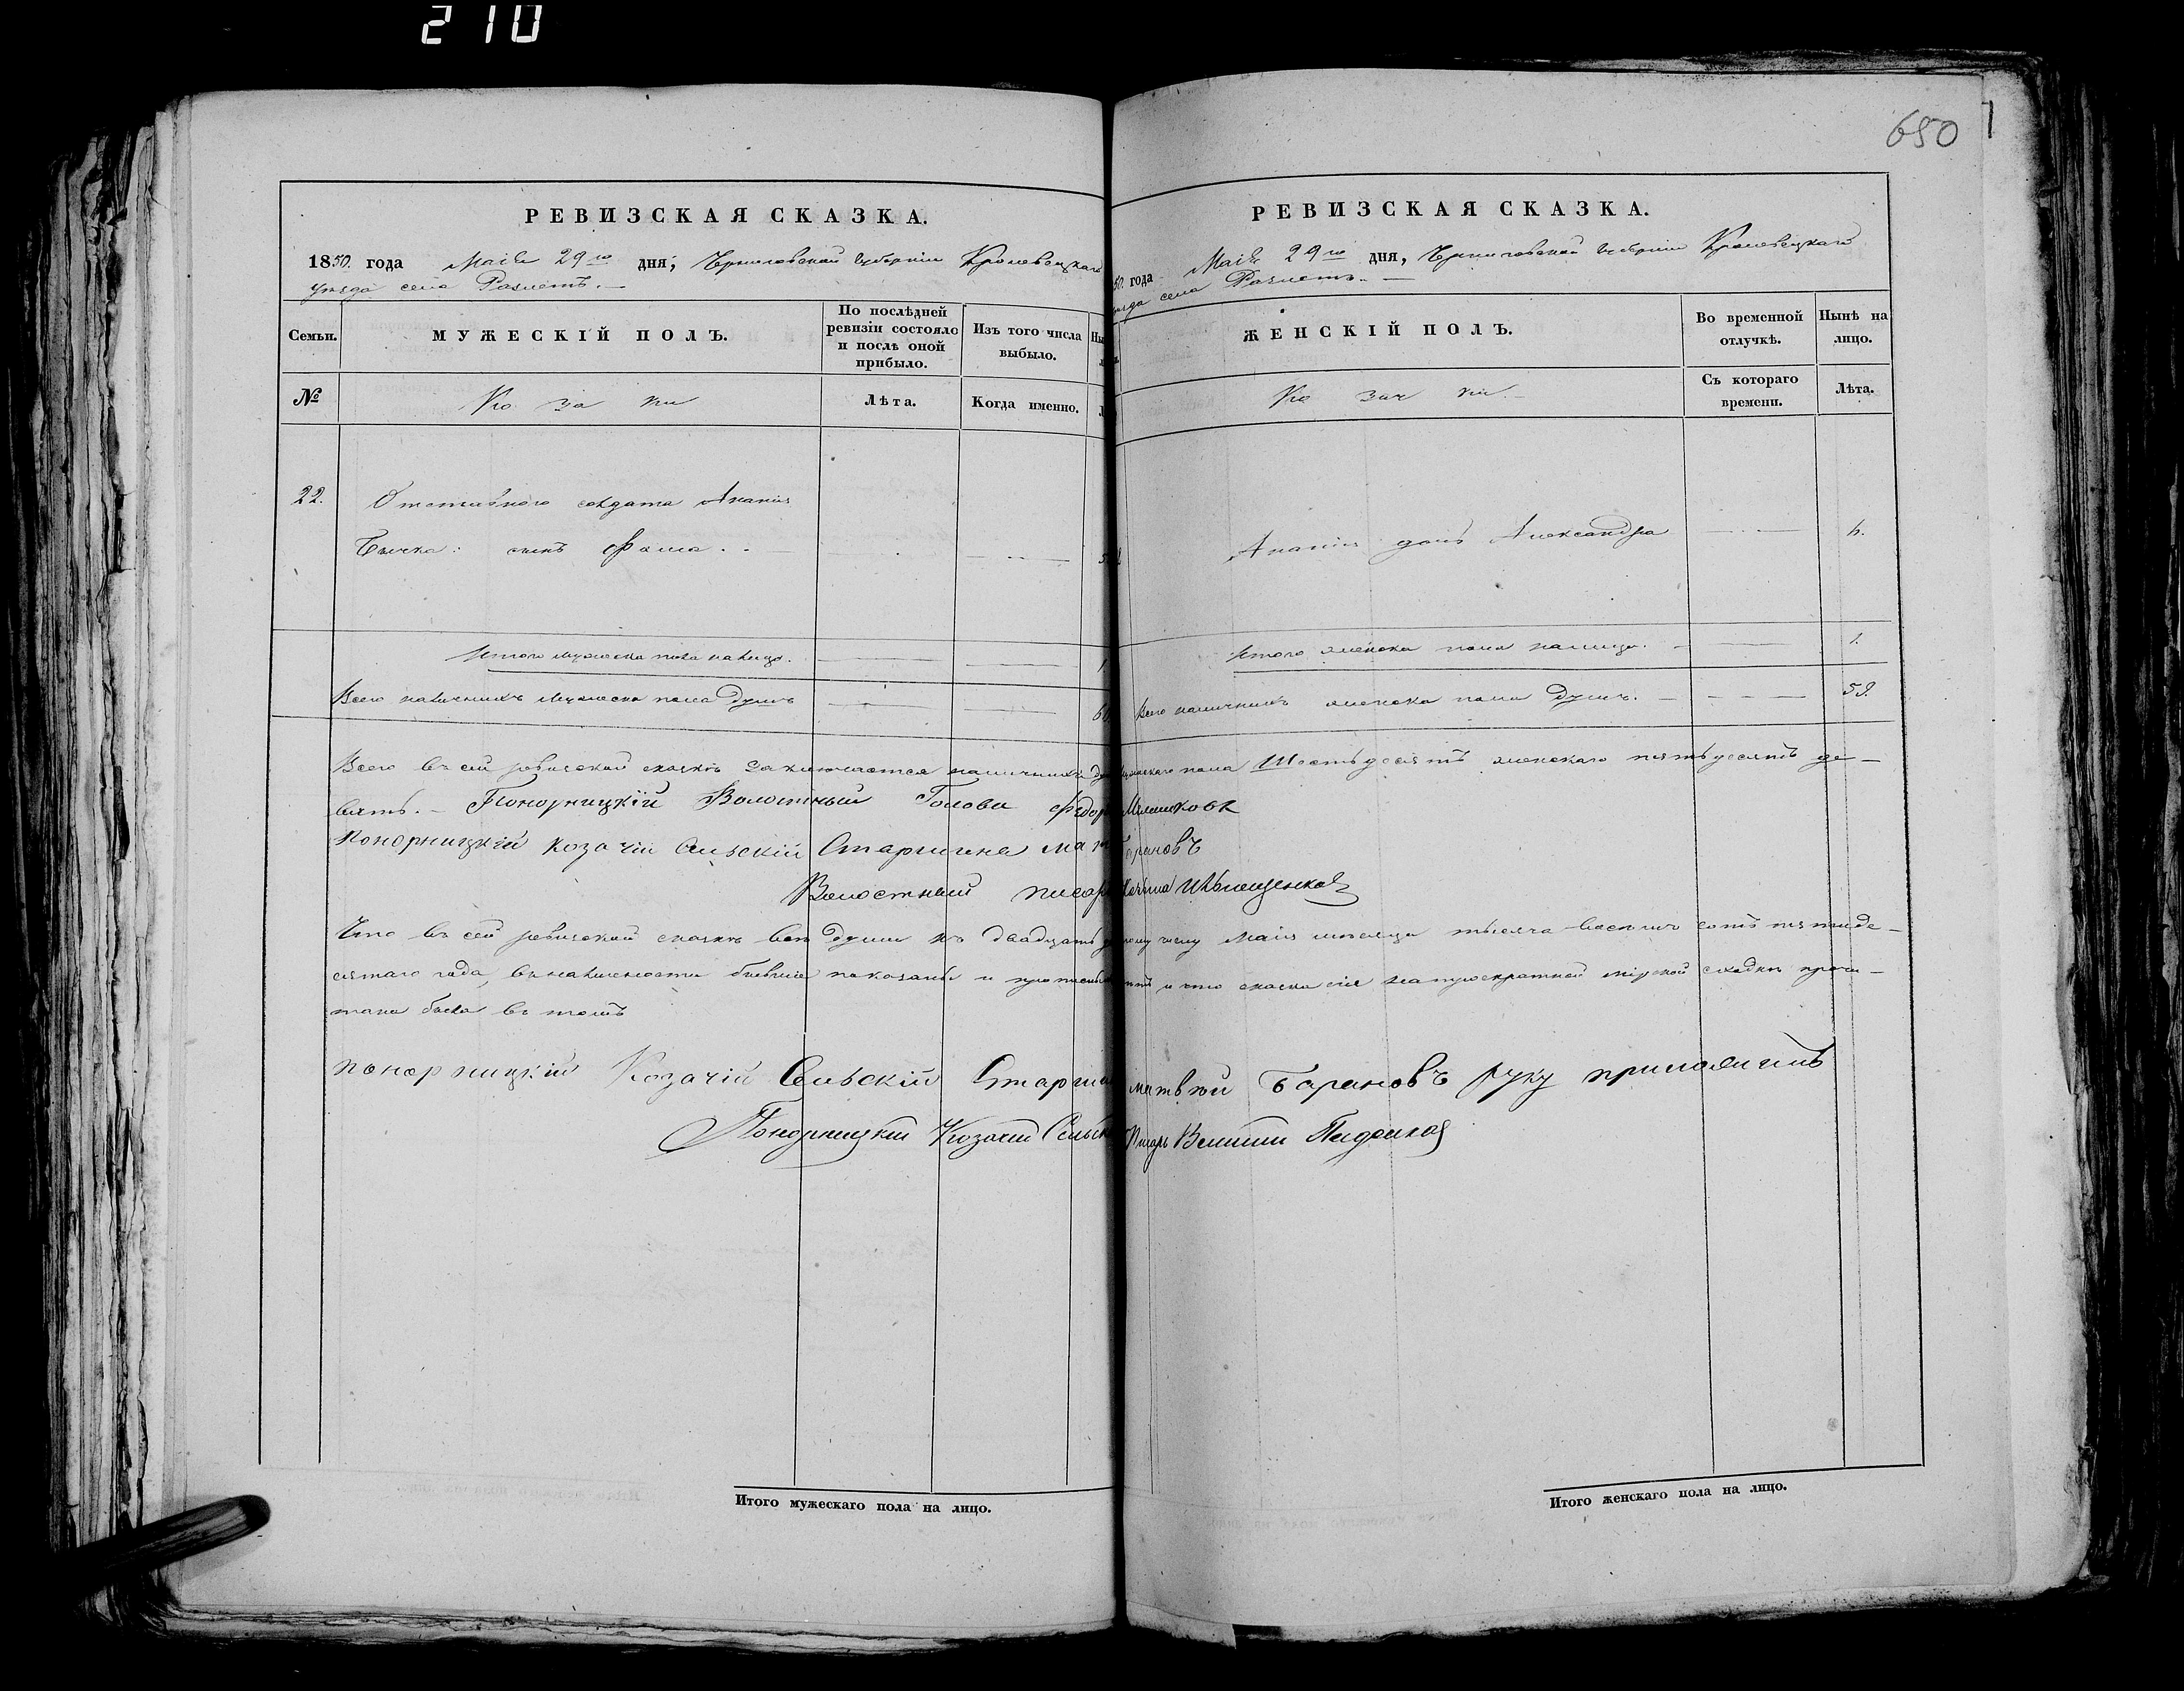 210
650
РЕВИЗСКАЯ СКАЗКА.
1850. года Маія 29го дня, Черниговской Губерніи Кролевецкаго
уѣзда села Разлетъ.
Семьи. МУЖЕСКІЙ ПОЛЪ. По послѣдней ревизіи состояло и послѣ оной прибыло. Изъ того числа выбыло.
№ Ко за ки Лѣта. Когда именно.
22. Отставного солдата Ананія
Бычка: сынъ Фома.
Итого мужеска пола налицо. 1
Всего наличныхъ мужеска пола душъ 60
РЕВИЗСКАЯ СКАЗКА.
50. года Маія 29го дня, Черниговской Губерніи Кролевецкаго
уѣзда села Разлетъ.
ЖЕНСКІЙ ПОЛЪ. Во временной отлучкѣ. Нынѣ на лицо.
Ко зач ки. Съ котораго времени. Лѣта.
Ананія дочь Александра
Итого женска пола налицо. 1.
Всего наличныхъ женска пола душъ. 59.
Всего въ сей ревизской сказкѣ заключается наличныхъ душъ мужескаго пола шестьдесятъ женскаго пятьдесятъ де-
вять. Понорницкій Волостный Голова Федоръ
Понорницкій Козачій Сельскій Старшина Мат Барановъ
Волостный писарь
Что въ сей ревизской сказкѣ всѣ души къ двадцать девятому числу Маія мѣсяца тысяча восемь сотъ пятиде-
сятаго года въ наличности бывшіе показаны и пропис и что сказка сія на троекратной мірской сходкѣ прочи-
тана была въ томъ
Понорницкій Козачій Сельскій Старшина матвѣй Барановъ руку приложилъ
Понорницкій Козачій Сельскій Писарь
Итого мужескаго пола на лицо.
Итого женскаго пола на лицо.